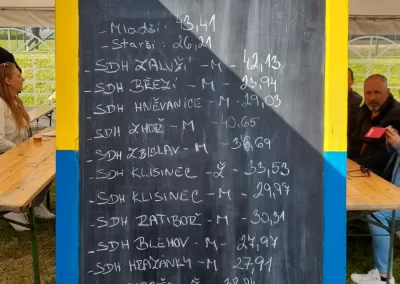 - Mladší: 43,41
- Starší: 26,21
- SDH ZALUŽÍ - M - 42,13
- SDH BŘEZÍ - M - 25,94
- SDH HNĚVANICE - M - 29,03
- SDH ZHOŘ - M - 40,65
- SDH ZBISLAV - M - 36,69
- SDH KLISINEC - Ž - 33,53
- SDH KLISINEC - M - 29,97
- SDH RATIBOŘ - M - 30,31
- SDH BLEHOV - M - 27,97
- SDH HRAZÁNKY - M 27,91